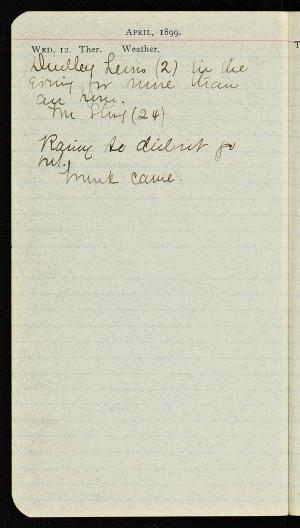 April, 1899.
Wed. 12. Ther. Weather.
Dudley Lewis (2) in the
Evening for more than
an hour.
Mr (24)
Rainy so didn't go
out.
Trunk came.